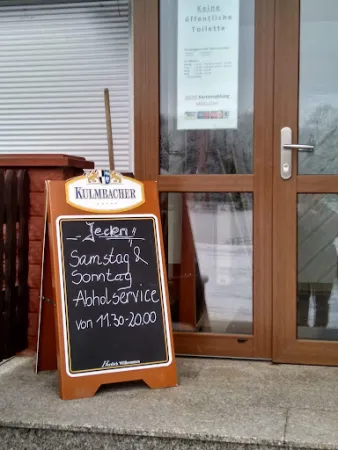 Keine
öffentliche
Toilette
KULMBACHER
„Jeden“
Samstag &
Sonntag
Abholservice
von 11.30-20.00
Herzlich Willkommen